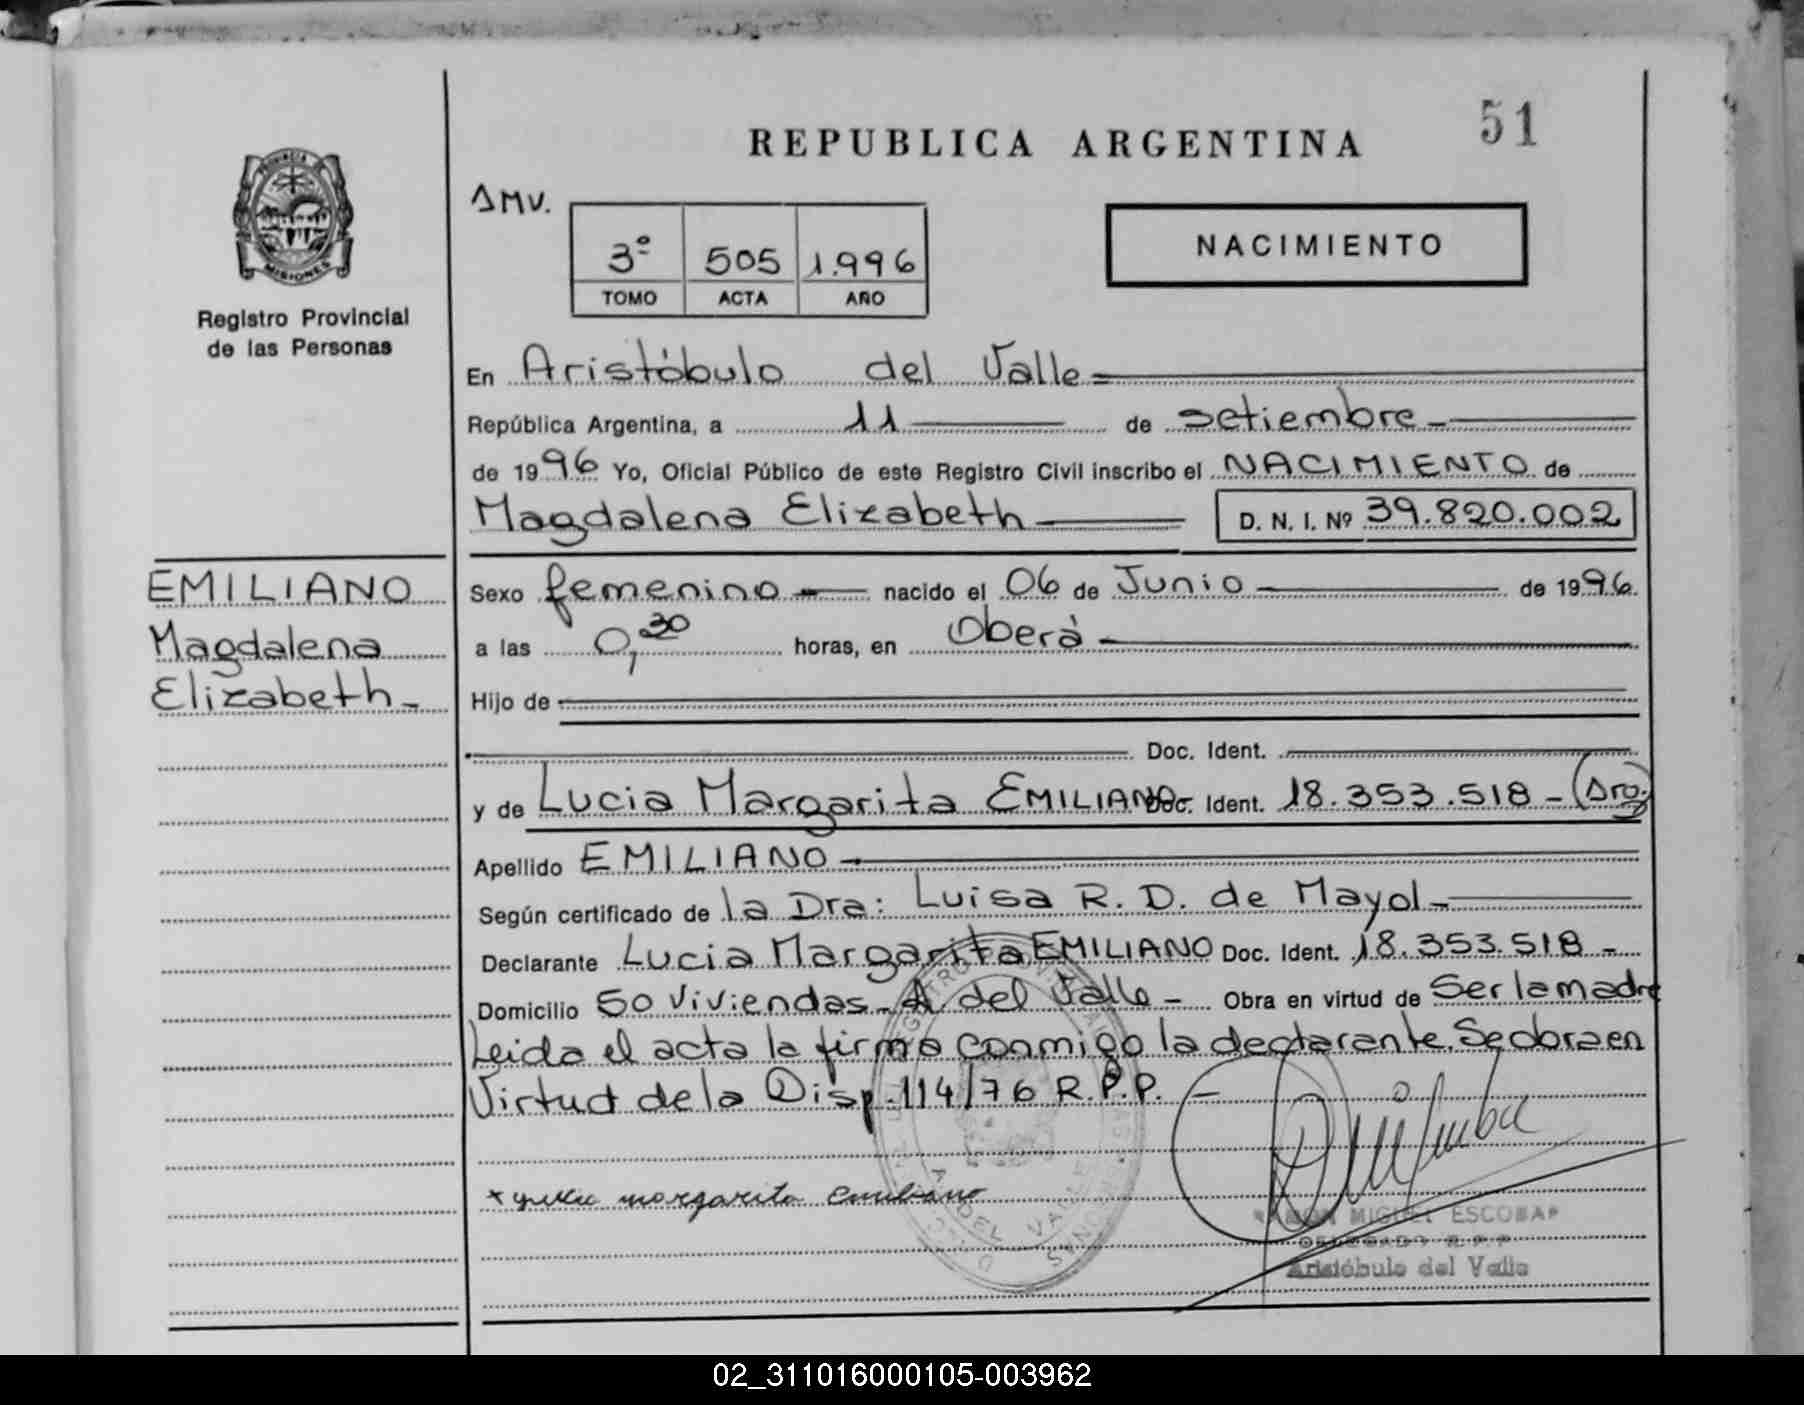 51
REPUBLICA ARGENTINA
PROVINCIA
MISIONES
AMV.
3º 505 1.996
TOMO ACTA AÑO
NACIMIENTO
Registro Provincial
de las Personas
En Aristóbulo del Valle
República Argentina, a 11 de setiembre
de 1996 Yo, Oficial Público de este Registro Civil inscribo el NACIMIENTO de
Magdalena Elizabeth D. N. I. Nº 39.820.002
EMILIANO
Magdalena
Elizabeth
Sexo femenino nacido el 06 de Junio de 1996.
a las 0,30 horas, en Oberá
Hijo de
Doc. Ident.
y de Lucia Margarita EMILIANO Doc. Ident. 18.353.518 - (Arg.)
Apellido EMILIANO
Según certificado de la Dra: Luisa R. D. de Mayol
Declarante Lucia Margarita EMILIANO Doc. Ident. 18.353.518 -
Domicilio 50 Viviendas - A. del Valle - Obra en virtud de Ser la madre
Leida el acta la firma conmigo la declarante. Se obra en
Virtud de la Disp. 114/76 R.P.P. -
margarita emiliano
RAMON MIGUEL ESCOBAR
DELEGADO R.P.P.
Aristóbulo del Valle
A. DEL VALLE
02_311016000105-003962